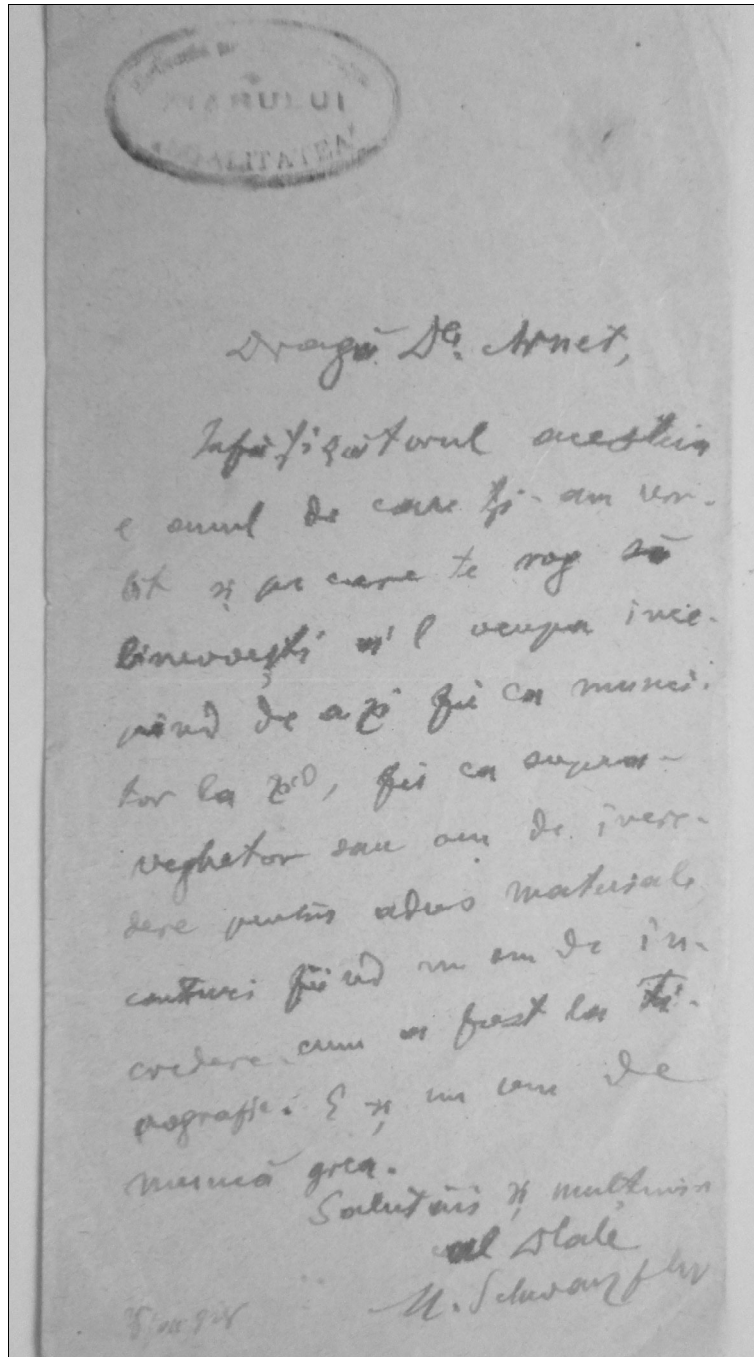 ZIARULUI
EGALITATEA
Dragă Dle. Arnet,
Infățizătorul acestuia
e omul de care ți-am vor-
bit și pe care te rog să
binevoești a'l ocupa ince-
pând de azi fie ca munci-
tor la zid, fie ca supra-
veghetor sau om de incre-
dere pentru adus materiale
fiind un om de în-
credere cum a fost la Ti-
pografie. E și un om de
muncă grea.
Salutări și mulțumiri
al Dtale
M. Schwarzfeld